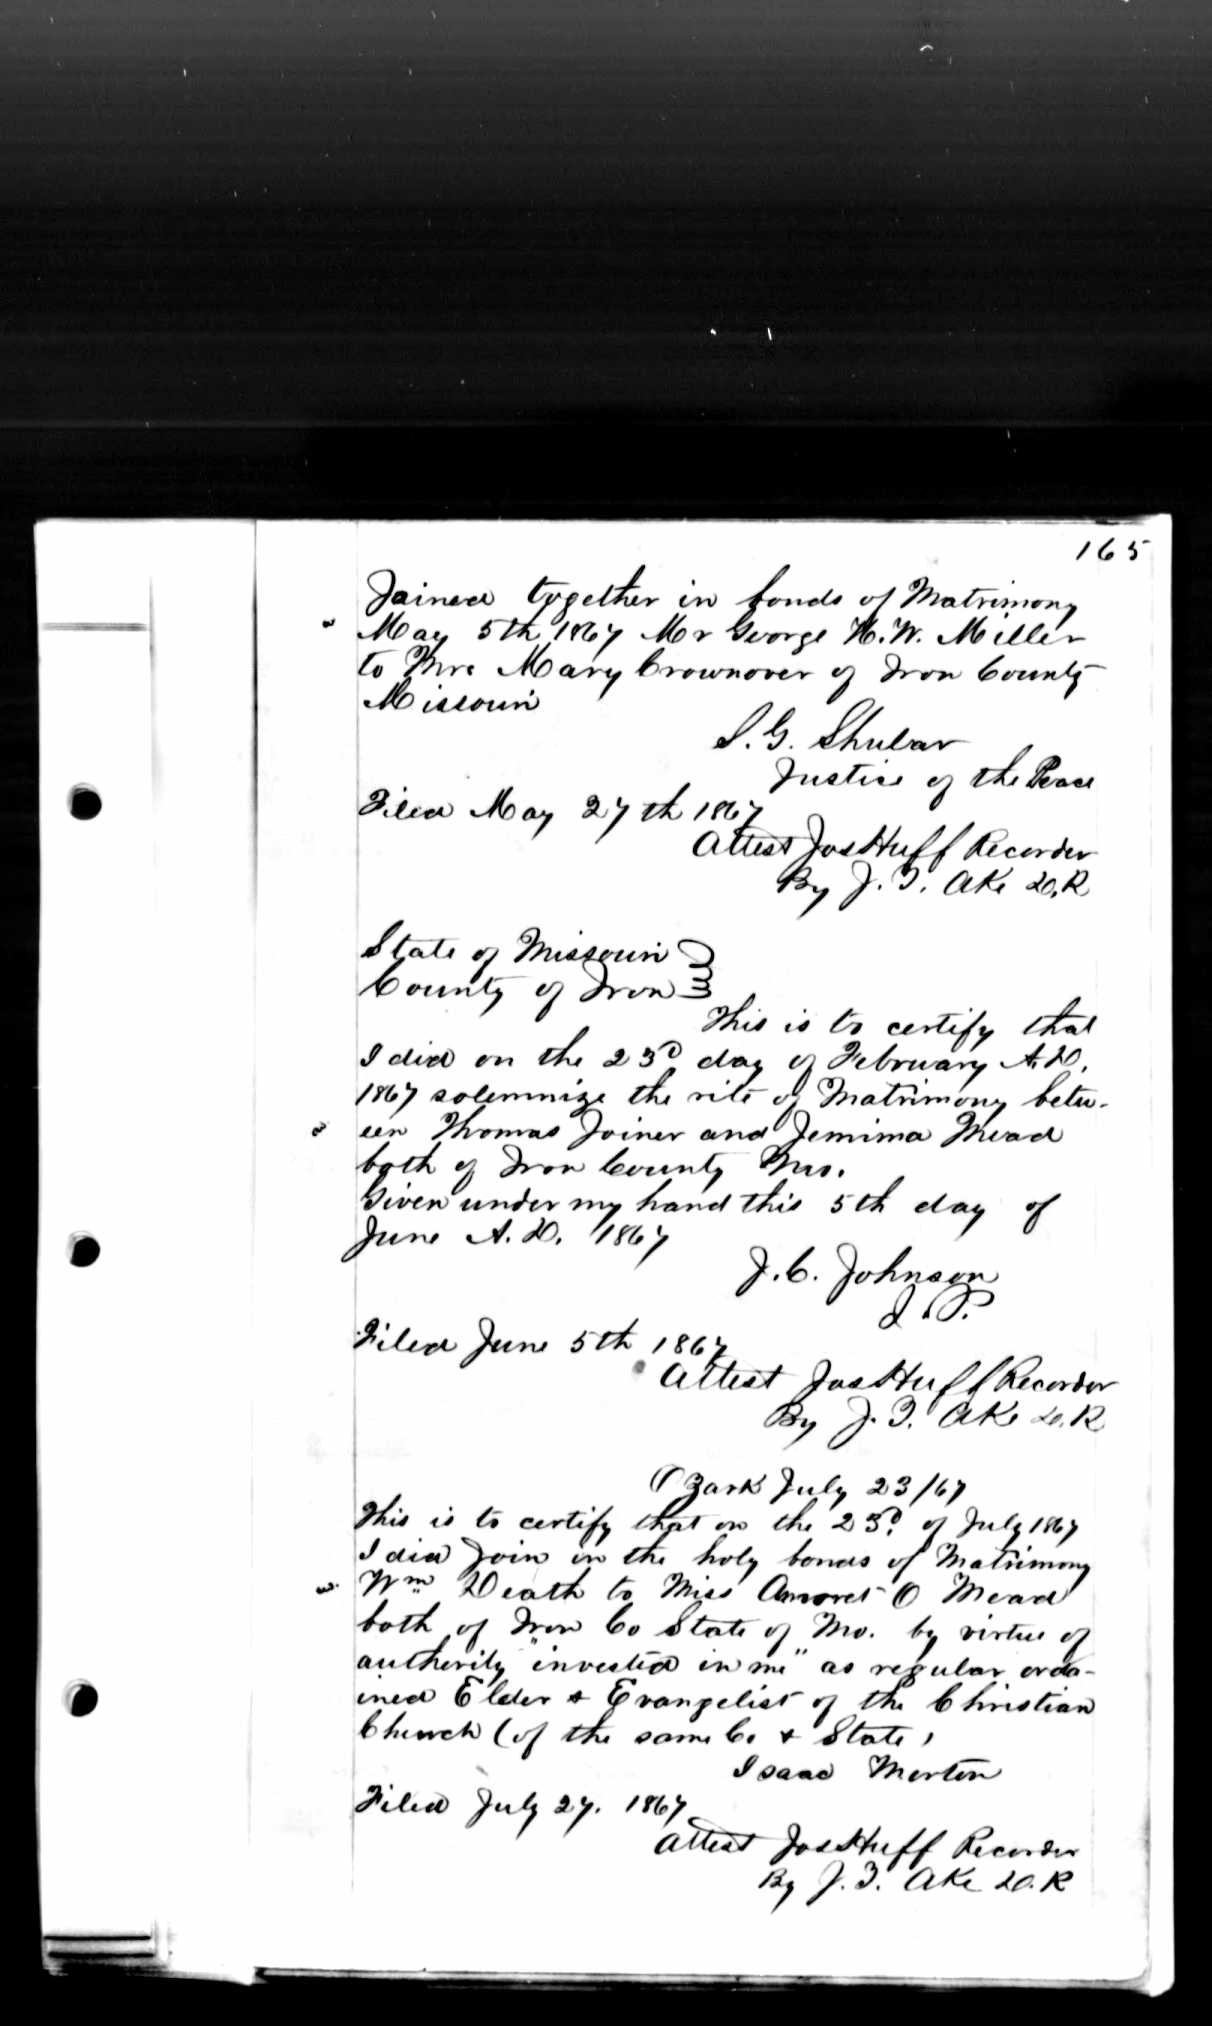 165
Joined together in bonds of Matrimony
May 5th 1867 Mr George H. W. Miller
to Mrs Mary Crownover of Iron County
Missouri
S. G. Shular
Justice of the Peace
Filed May 27th 1867
Attest Jos Huff Recorder
By J. T. Ake D. R
State of Missouri
County of Iron
This is to certify that
I did on the 23d day of February A. D.
1867 solemnize the rite of Matrimony betw-
een Thomas Joiner and Jemima Mead
both of Iron County Mo.
Given under my hand this 5th day of
June A. D. 1867
J. C. Johnson
J. P.
Filed June 5th 1867
Attest Jos Huff Recorder
By J. T. Ake D. R
Ozark July 23/67
This is to certify that on the 23d. of July 1867
I did Join in the holy bonds of Matrimony
Wm Death to Miss Amoret O Mead
both of Iron Co State of Mo. by virtue of
authority "invested in me" as regular orda-
ined Elder & Evangelist of the Christian
Church (of the same Co & State)
Isaac Morton
Filed July 27. 1867
Attest Jos Huff Recorder
By J. T. Ake D. R